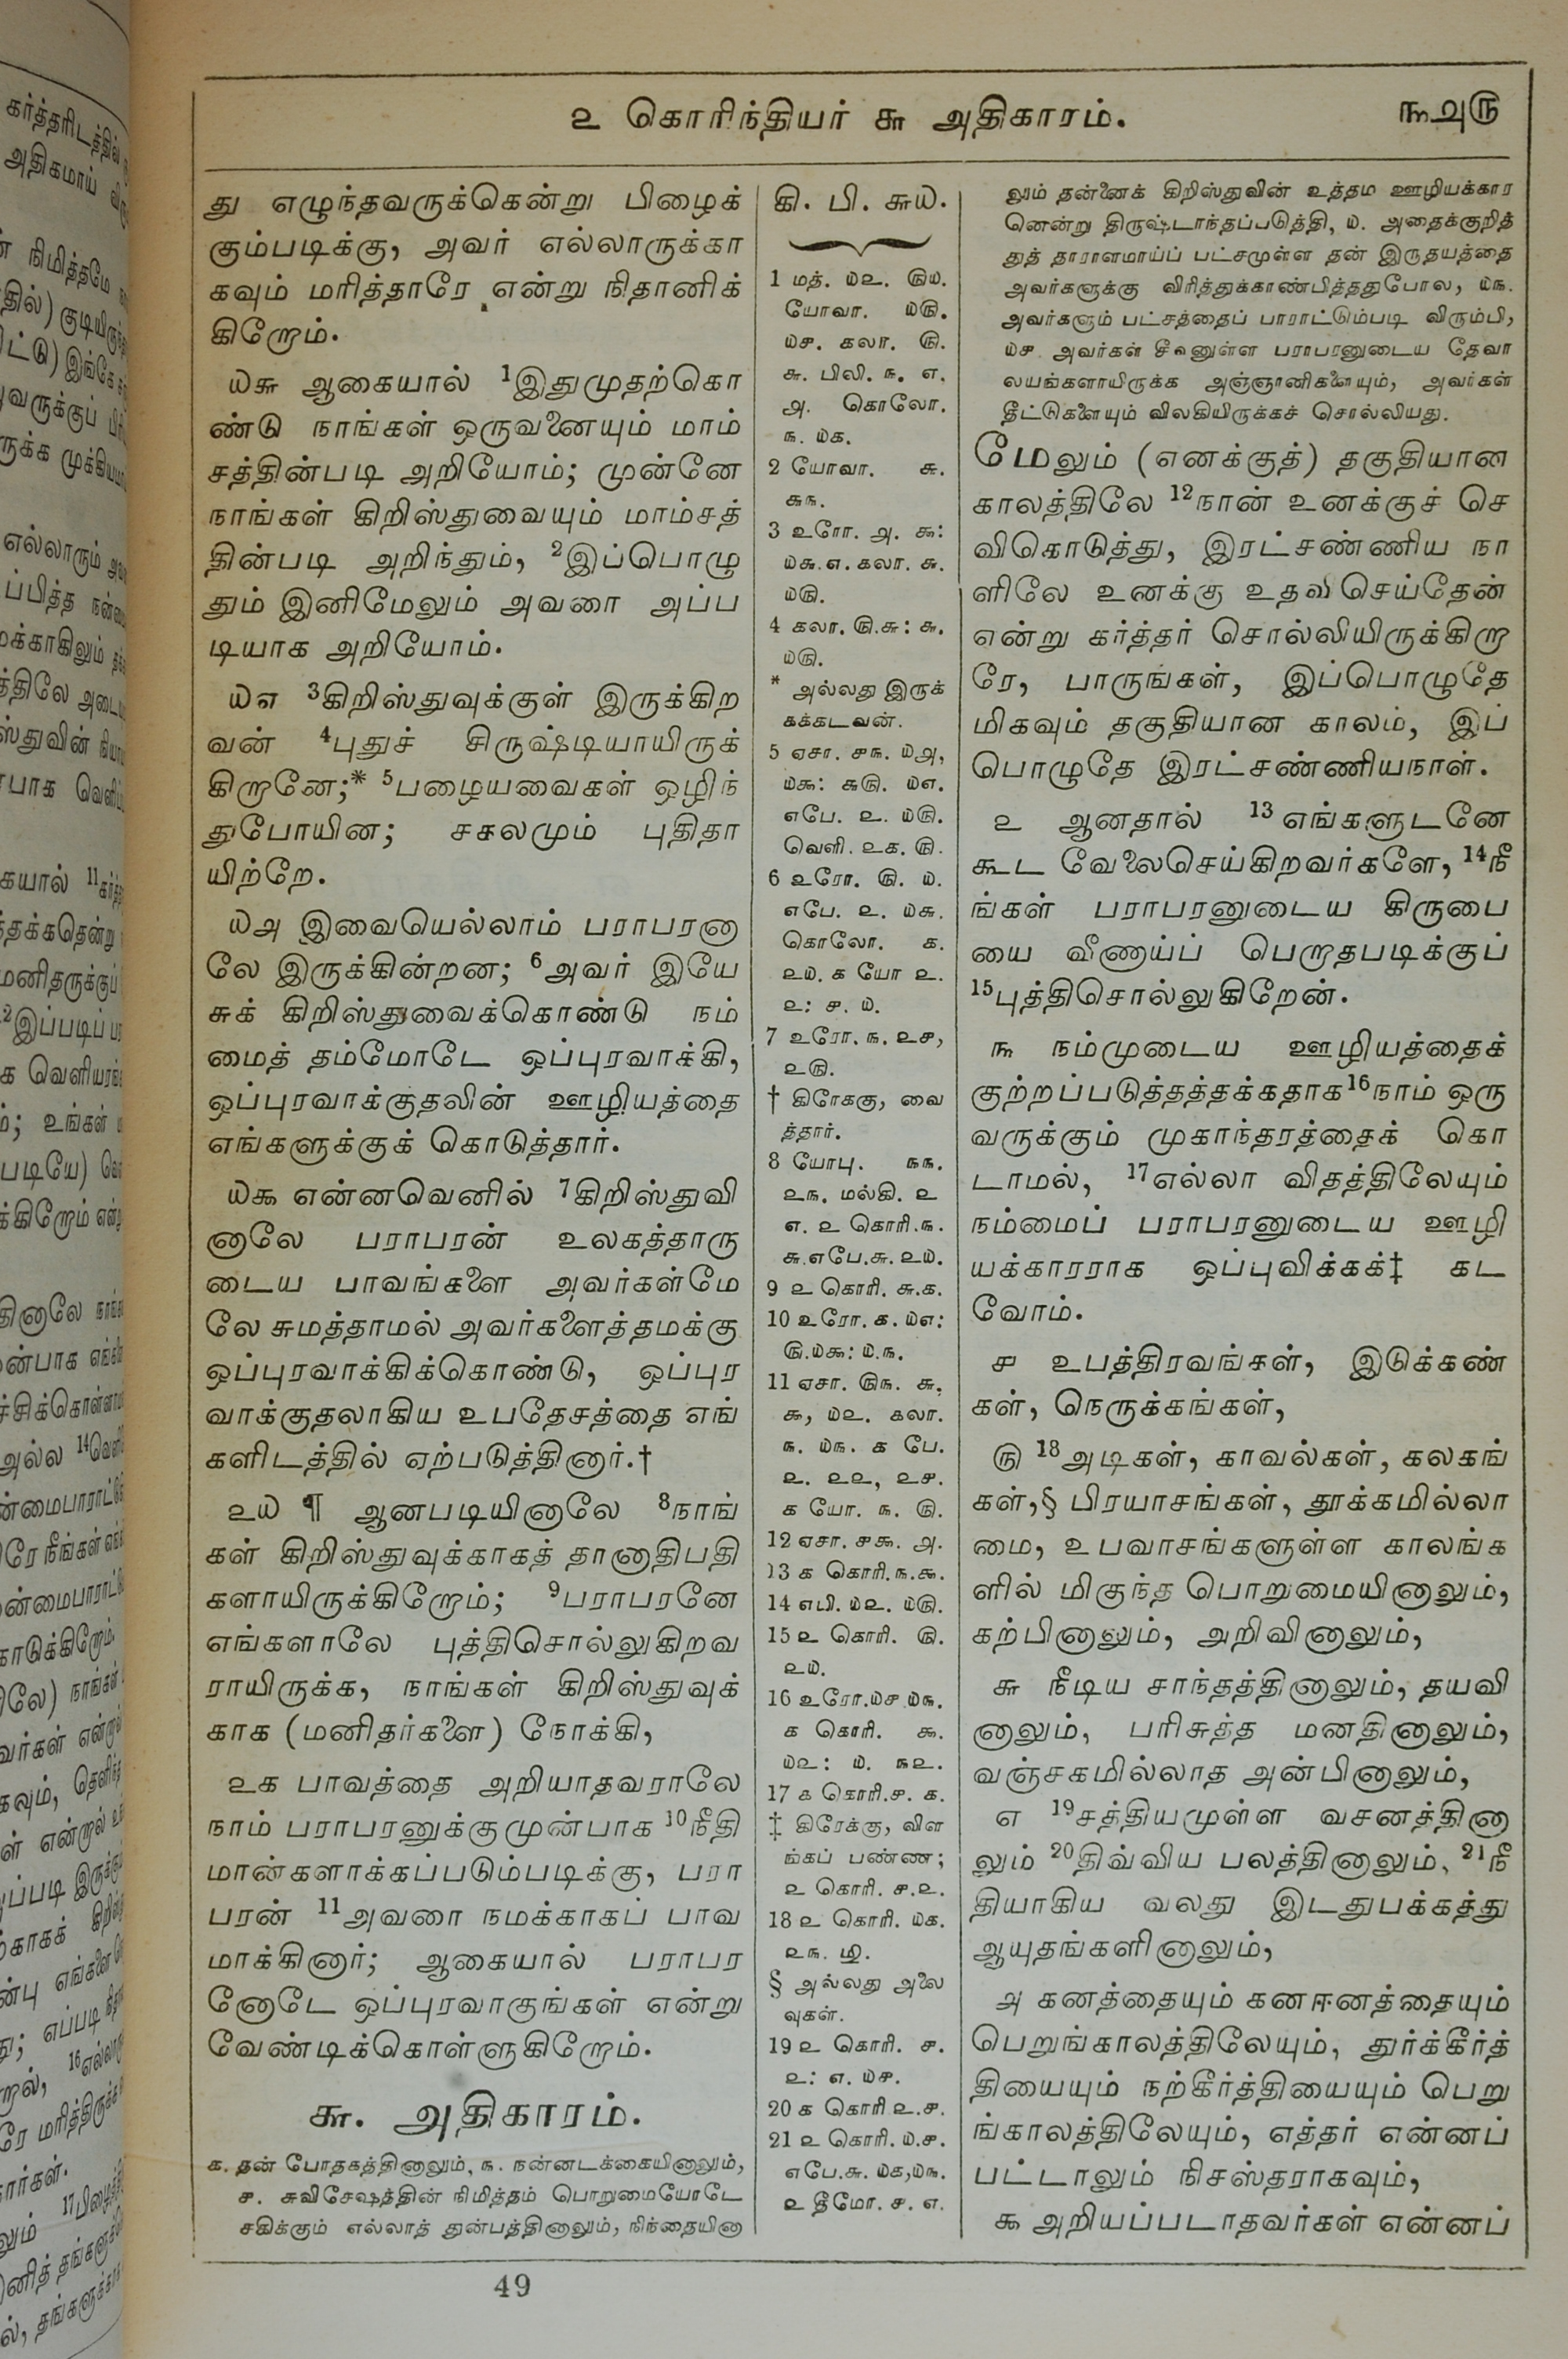 ௨ கொரிந்தியர் ௬ அதிகாரம்.
௩௮௫
து எழுந்தவருக்கென்று பிழைக்
கும்படிக்கு, அவர் எல்லாருக்கா
கவும் மரித்தாரே என்று நிதானிக்
கிறோம்.
௰௬ ஆகையால் ¹இதுமுதற்கொ
ண்டு நாங்கள் ஒருவனையும் மாம்
சத்தின்படி அறியோம்; முன்னே
நாங்கள் கிறிஸ்துவையும் மாம்சத்
தின்படி அறிந்தும், ²இப்பொழு
தும் இனிமேலும் அவரை அப்ப
டியாக அறியோம்.
௰௭ ³கிறிஸ்துவுக்குள் இருக்கிற
வன் ⁴புதுச் சிருஷ்டியாயிருக்
கிறானே;* ⁵பழையவைகள் ஒழிந்
துபோயின; சகலமும் புதிதா
யிற்றே.
௰௮ இவையெல்லாம் பராபரனா
லே இருக்கின்றன; ⁶அவர் இயே
சுக் கிறிஸ்துவைக்கொண்டு நம்
மைத் தம்மோடே ஒப்புரவாக்கி,
ஒப்புரவாக்குதலின் ஊழியத்தை
எங்களுக்குக் கொடுத்தார்.
௰௯ என்னவெனில் ⁷கிறிஸ்துவி
னாலே பராபரன் உலகத்தாரு
டைய பாவங்களை அவர்கள்மே
லே சுமத்தாமல் அவர்களைத்தமக்கு
ஒப்புரவாக்கிக்கொண்டு, ஒப்புர
வாக்குதலாகிய உபதேசத்தை எங்
களிடத்தில் ஏற்படுத்தினார்.†
௨௰ ¶ ஆனபடியினாலே ⁸நாங்
கள் கிறிஸ்துவுக்காகத் தானாதிபதி
களாயிருக்கிறோம்; ⁹பராபரனே
எங்களாலே புத்திசொல்லுகிறவ
ராயிருக்க, நாங்கள் கிறிஸ்துவுக்
காக (மனிதர்களை) நோக்கி,
௨௧ பாவத்தை அறியாதவராலே
நாம் பராபரனுக்குமுன்பாக ¹⁰நீதி
மான்களாக்கப்படும்படிக்கு, பரா
பரன் ¹¹அவரை நமக்காகப் பாவ
மாக்கினார்; ஆகையால் பராபர
னோடே ஒப்புரவாகுங்கள் என்று
வேண்டிக்கொள்ளுகிறோம்.
௬. அதிகாரம்.
௧. தன் போதகத்தினாலும், ௩. நன்னடக்கையினாலும்,
௪. சுவிசேஷத்தின் நிமித்தம் பொறுமையோடே
சகிக்கும் எல்லாத் துன்பத்தினாலும், நிந்தையினா
கி. பி. ௬௰.
1 மத். ௰௨. ௫௰.
யோவா. ௰௫.
௰௪. கலா. ௫.
௬. பிலி. ௩. ௭,
௮. கொலோ.
௩. ௰௧.
2 யோவா. ௬.
௬௩.
3 உரோ. ௮. ௯:
௰௬.௭. கலா. ௬.
௰௫.
4 கலா. ௫.௬: ௬.
௰௫.
* அல்லது இருக்
கக்கடவன்.
5 ஏசா. ௪௩. ௰௮,
௰௯: ௬௫. ௰௭.
எபே. ௨. ௰௫.
வெளி. ௨௧. ௫.
6 உரோ. ௫. ௰.
எபே. ௨. ௰௬.
கொலோ. ௧.
௨௰. ௧ யோ ௨.
௨: ௪. ௰.
7 உரோ. ௩. ௨௪,
௨௫.
† கிரேககு, வை
த்தார்.
8 யோபு. ௩௩.
௨௩. மல்கி. ௨
௭. ௨ கொரி.௩.
௬.எபே.௬. ௨௰.
9 ௨ கொரி. ௬.௧.
10 உரோ. ௧. ௰௭:
௫.௰௯: ௰.௩.
11 ஏசா. ௫௩. ௬,
௯, ௰௨. கலா.
௩. ௰௩. ௧ பே.
௨. ௨௨, ௨௪.
௧ யோ. ௩. ௫.
12 ஏசா. ௪௯. ௮.
13 ௧ கொரி.௩.௯.
14 எபி. ௰௨. ௰௫.
15 ௨ கொரி. ௫.
௨௰.
16 உரோ.௰௪.௰௩.
௧ கொரி. ௯.
௰௨: ௰. ௩௨.
17 ௧ கொரி.௪. ௧.
‡ கிரேக்கு, விள
ங்கப் பண்ண;
௨ கொரி. ௪.௨.
18 ௨ கொரி. ௰௧.
௨௩.
§ அல்லது அலை
வுகள்.
19 ௨ கொரி. ௪.
௨: ௭. ௰௪.
20 ௧ கொரி ௨.௪.
21 ௨ கொரி. ௰.௪.
எபே.௬. ௰௧,௰௩.
௨ தீமோ. ௪. ௭.
லும் தன்னைக் கிறிஸ்துவின் உத்தம ஊழியக்கார
னென்று திருஷ்டாந்தப்படுத்தி, ௰. அதைக்குறித்
துத் தாராளமாய்ப் பட்சமுள்ள தன் இருதயத்தை
அவர்களுக்கு விரித்துக்காண்பித்ததுபோல, ௰௩.
அவர்களும் பட்சத்தைப் பாராட்டும்படி விரும்பி,
௰௪ அவர்கள் சீவனுள்ள பராபரனுடைய தேவா
லயங்களாயிருக்க அஞ்ஞானிகளையும், அவர்கள்
தீட்டுகளையும் விலகியிருக்கச் சொல்லியது.
மேலும் (எனக்குத்) தகுதியான
காலத்திலே ¹²நான் உனக்குச் செ
விகொடுத்து, இரட்சண்ணிய நா
ளிலே உனக்கு உதவிசெய்தேன்
என்று கர்த்தர் சொல்லியிருக்கிறா
ரே, பாருங்கள், இப்பொழுதே
மிகவும் தகுதியான காலம், இப்
பொழுதே இரட்சண்ணியநாள்.
௨ ஆனதால் ¹³எங்களுடனே
கூட வேலைசெய்கிறவர்களே, ¹⁴நீ
ங்கள் பராபரனுடைய கிருபை
யை வீணாய்ப் பெறாதபடிக்குப்
¹⁵புத்திசொல்லுகிறேன்.
௩ நம்முடைய ஊழியத்தைக்
குற்றப்படுத்தத்தக்கதாக¹⁶நாம் ஒரு
வருக்கும் முகாந்தரத்தைக் கொ
டாமல், ¹⁷எல்லா விதத்திலேயும்
நம்மைப் பராபரனுடைய ஊழி
யக்காரராக ஒப்புவிக்கக்‡ கட
வோம்.
௪ உபத்திரவங்கள், இடுக்கண்
கள், நெருக்கங்கள்,
௫ ¹⁸அடிகள், காவல்கள், கலகங்
கள்,§ பிரயாசங்கள், தூக்கமில்லா
மை, உபவாசங்களுள்ள காலங்க
ளில் மிகுந்த பொறுமையினாலும்,
கற்பினாலும், அறிவினாலும்,
௬ நீடிய சாந்தத்தினாலும், தயவி
னாலும், பரிசுத்த மனதினாலும்,
வஞ்சகமில்லாத அன்பினாலும்,
௭ ¹⁹சத்தியமுள்ள வசனத்தினா
லும் ²⁰திவ்விய பலத்தினாலும், ²¹நீ
தியாகிய வலது இடதுபக்கத்து
ஆயுதங்களினாலும்,
௮ கனத்தையும் கனஈனத்தையும்
பெறுங்காலத்திலேயும், துர்க்கீர்த்
தியையும் நற்கீர்த்தியையும் பெறு
ங்காலத்திலேயும், எத்தர் என்னப்
பட்டாலும் நிசஸ்தராகவும்,
௯ அறியப்படாதவர்கள் என்னப்
49